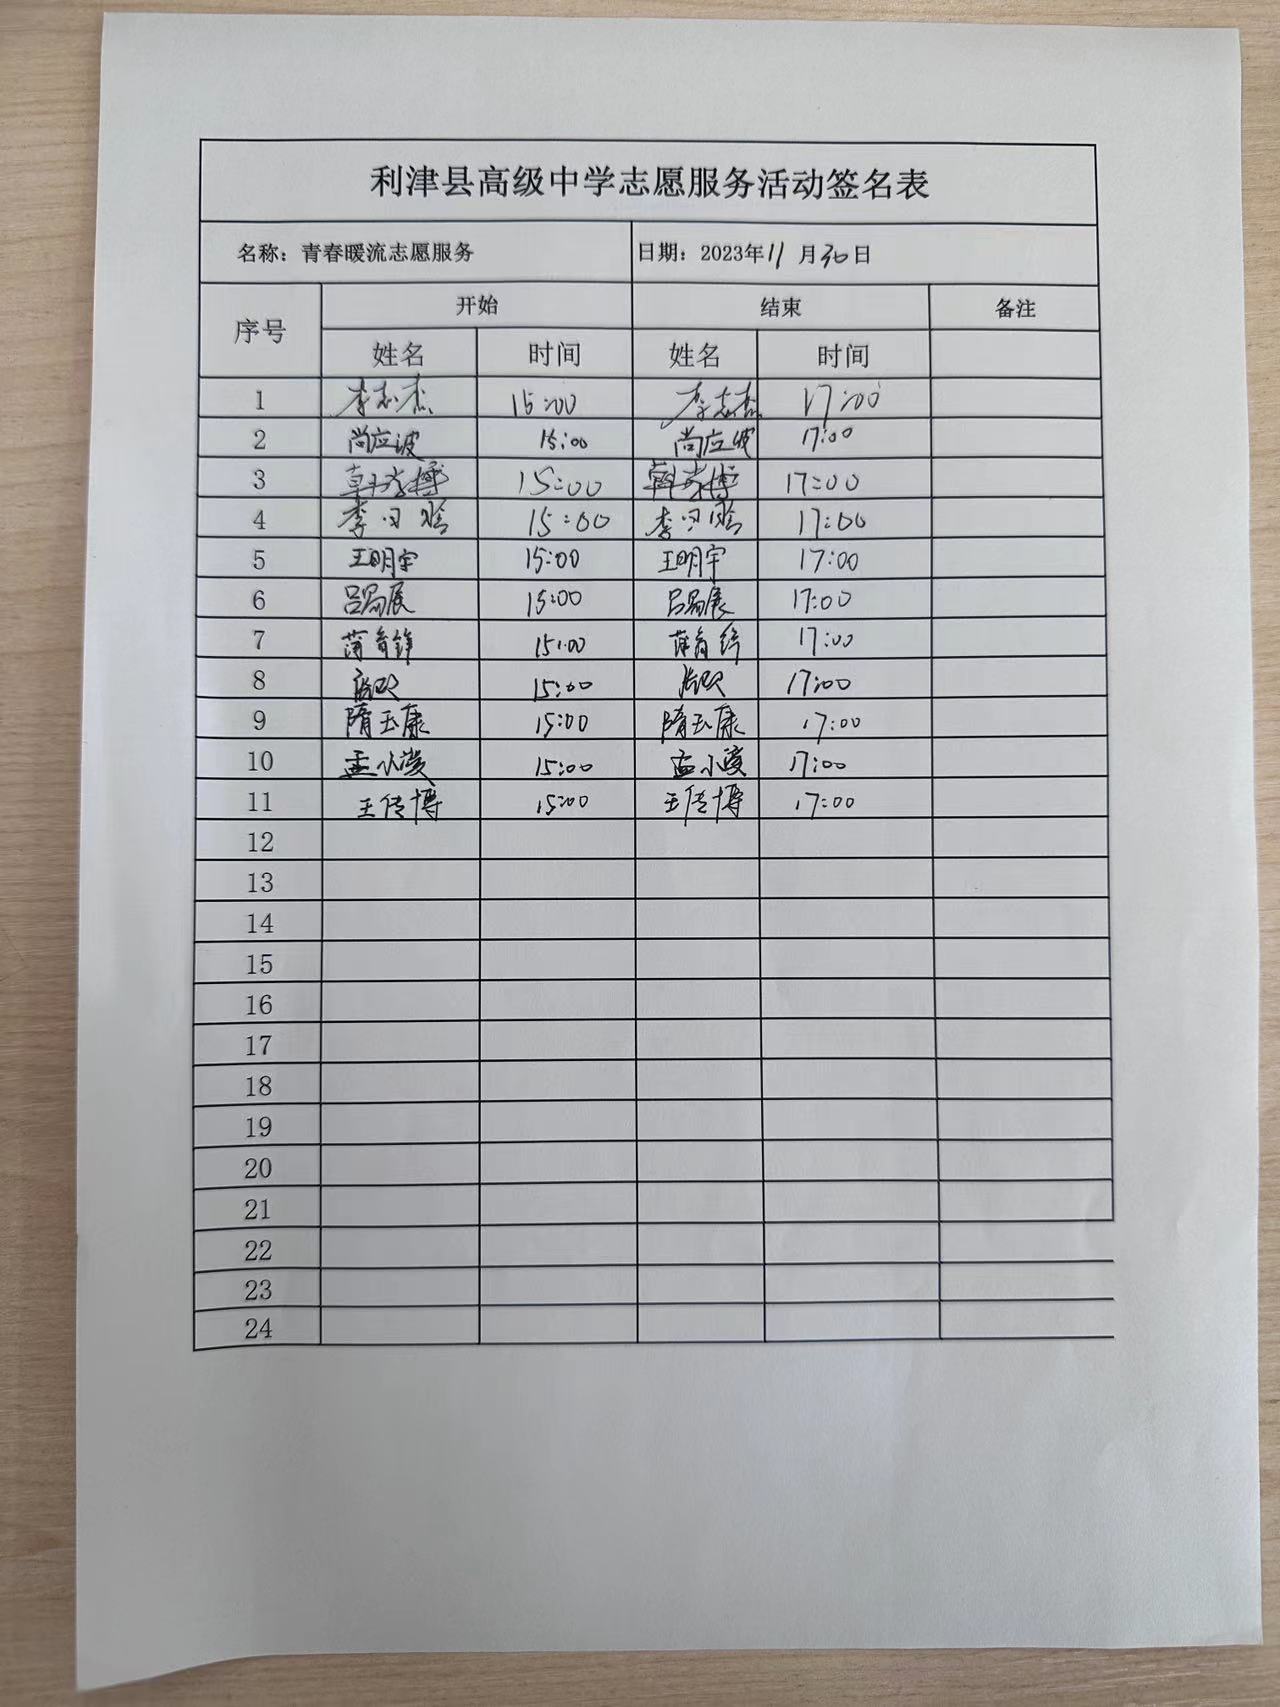 利津县高级中学志愿服务活动签名表
名称：青春暖流志愿服务 日期：2023年11月30日
序号 开始 结束 备注
姓名 时间 姓名 时间
1 李志杰 15:00 李志杰 17:00
2 尚应波 15:00 尚应波 17:00
3 15:00 17:00
4 李 15:00 李 17:00
5 王明宇 15:00 王明宇 17:00
6 吕易展 15:00 吕易展 17:00
7 15:00 17:00
8 15:00 17:00
9 隋玉康 15:00 隋玉康 17:00
10 孟小凌 15:00 孟小凌 17:00
11 王传博 15:00 王传博 17:00
12
13
14
15
16
17
18
19
20
21
22
23
24